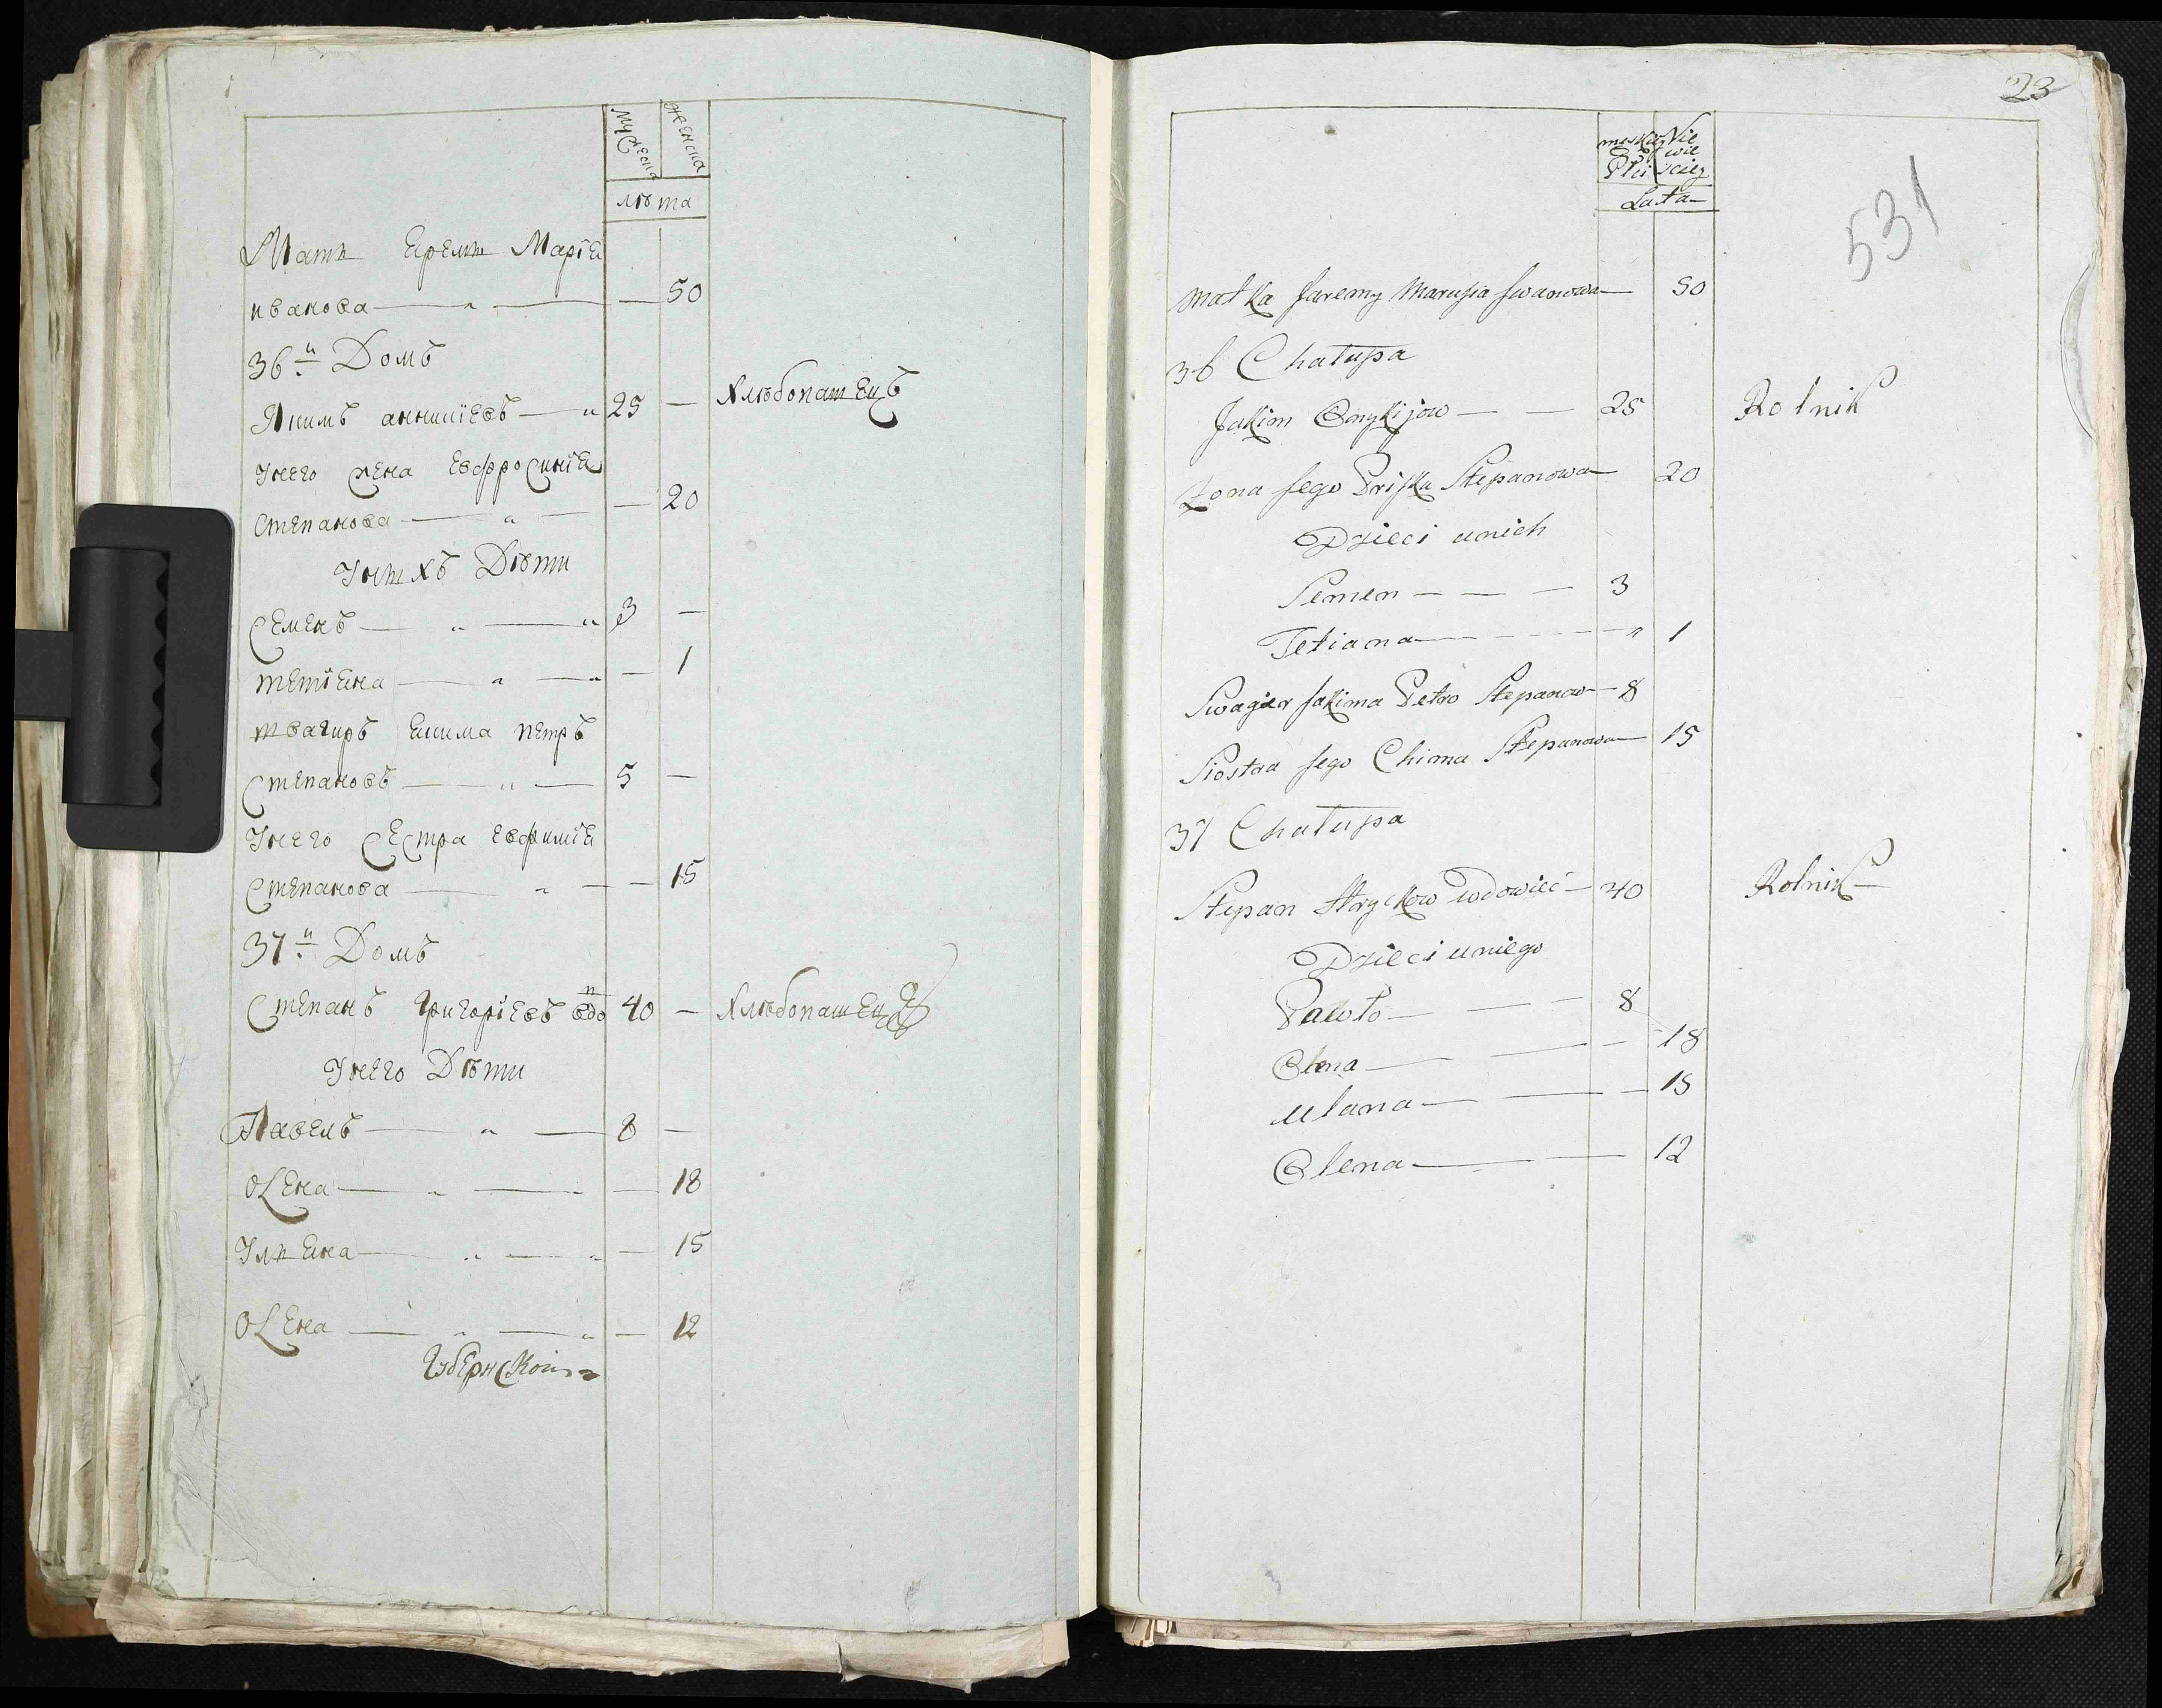 Мужеска Женска
лѣта
Мати Еремы Маріа
иванова — — 50
36й Домъ
Якимъ аникіевъ — 25 — Хлѣбопашецъ
Унего жена Евфросиніа
степанова — — 20
Унихъ Дѣти
Семенъ — — 3 —
тетіана — — — 1
швагиръ Екима петръ
Степановъ — — 5 —
Унего Сестра Евфиміа
Степанова — — 15
37й Домъ
Степанъ Григоріевъ вдо 40 — Хлѣбопашецъ
Унего Дѣти
Павелъ — — 8 —
Олена — — — 18
Улиана — — — 15
Олена — — — 12
Губернской
23
531
męskiey Nie wie
Płci sciey
Lata
matka Jaremy Marusia Iwanowa — 50
36 Chałupa
Jakim Onykijow — — 25 Rolnik
Zona Jego Priska Stepanowa — 20
Dzieci unich
Semen — — — 3
Tetiana — — — 1
Swagier Jakima Petro Stepanow — 8
Siostra Jego Chima Stepanowa — 15
37 Chałupa
Stepan Hryckow wdowieć — 40 Rolnik
Dzieci uniego
Pawło — — — 8
Olena — — — 18
Ulana — — — 15
Olena — — 12